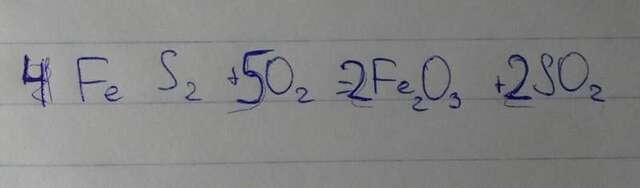 4FeS₂ + 5O₂ = 2Fe₂O₃ + 2SO₂